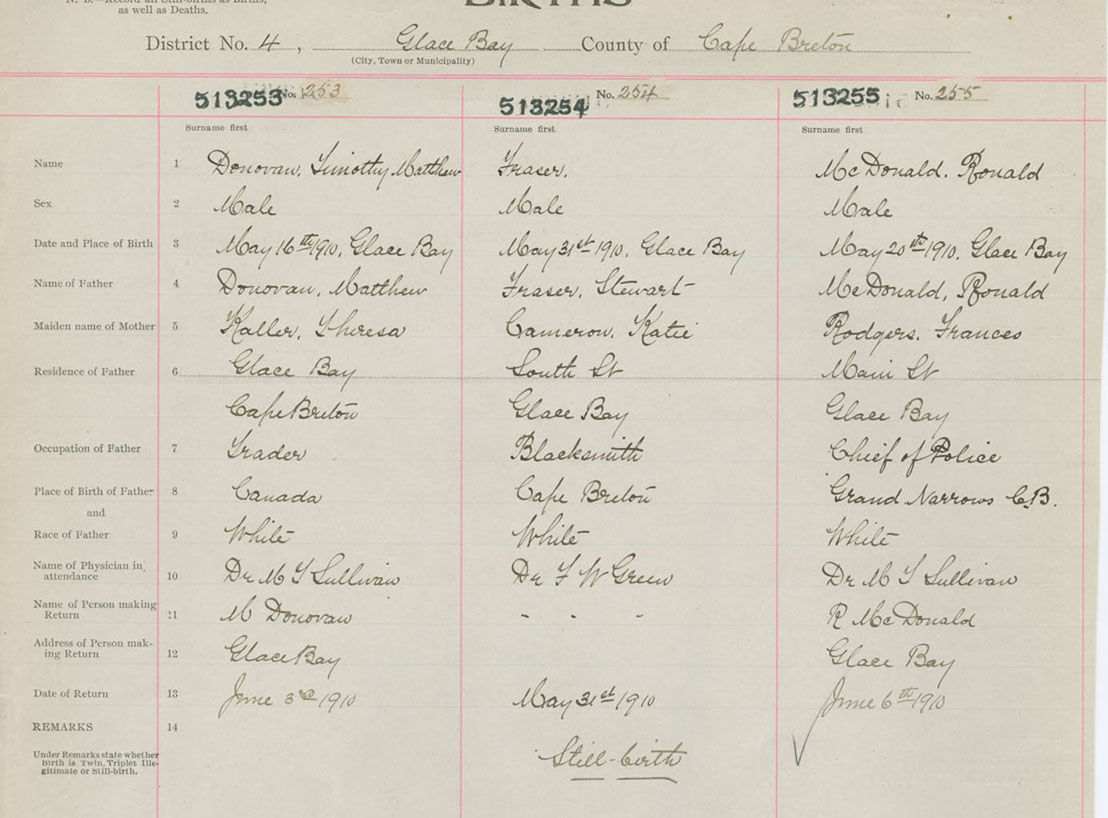 N. B.—Record all Still-births as Births,
as well as Deaths.
BIRTHS
District No. 4, Glace Bay County of Cape Breton
(City, Town or Municipality)
513253 No. 253 513254 No. 254 513255 No. 255
Surname first Surname first Surname first
Name 1 Donovan, Timothy Matthew Fraser. McDonald. Ronald
Sex 2 Male Male Male
Date and Place of Birth 3 May 16th 1910, Glace Bay May 31st 1910, Glace Bay May 20th 1910, Glace Bay
Name of Father 4 Donovan, Matthew Fraser, Stewart McDonald, Ronald
Maiden name of Mother 5 Theresa Cameron, Katie Rodgers, Frances
Residence of Father 6 Glace Bay South St Main St
Cape Breton Glace Bay Glace Bay
Occupation of Father 7 Trader Blacksmith Chief of Police
Place of Birth of Father 8 Canada Cape Breton Grand Narrows C.B.
and
Race of Father 9 White White White
Name of Physician in
attendance 10 Dr M T Sullivan Dr F W Green Dr M T Sullivan
Name of Person making
Return 11 M Donovan - - - R McDonald
Address of Person mak-
ing Return 12 Glace Bay Glace Bay
Date of Return 13 June 3rd 1910 May 31st 1910 June 6th 1910
REMARKS 14
Under Remarks state whether
Birth is Twin, Triplet Ille-
gitimate or Still-birth.
Still-birth